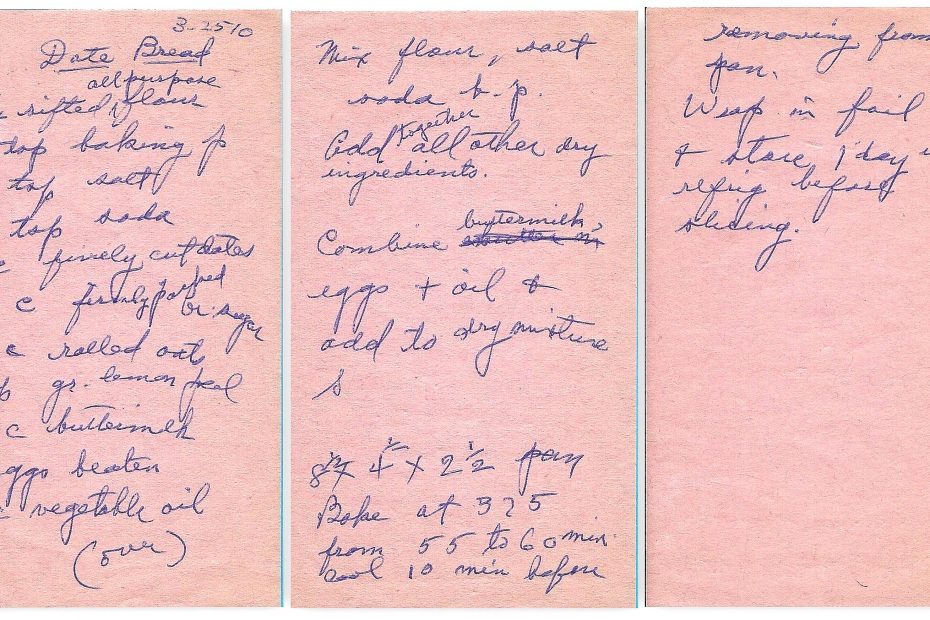 3-2510
Date Bread
all purpose
sifted flour
tsp baking p
tsp salt
tsp soda
c finely cut dates
c firmly packed
br. sugar
c rolled oats
gr. lemon peel
c buttermilk
ggs beaten
vegetable oil
(over)
Mix flour, salt
soda b. p.
together
Add all other dry
ingredients.
buttermilk,
Combine
eggs + oil &
add to dry mixture
s
8½ x 4½ x 2½ pan
Bake at 325
from 55 to 60 min.
cool 10 min before
removing from
pan.
Wrap in foil
& store 1 day i
refrig before
slicing.